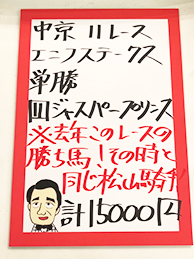 中京 11レース
エニフステークス
単勝
11 ジャスパープリンス
※去年このレースの
勝ち馬！その時と
同じ松山騎手
計15000円